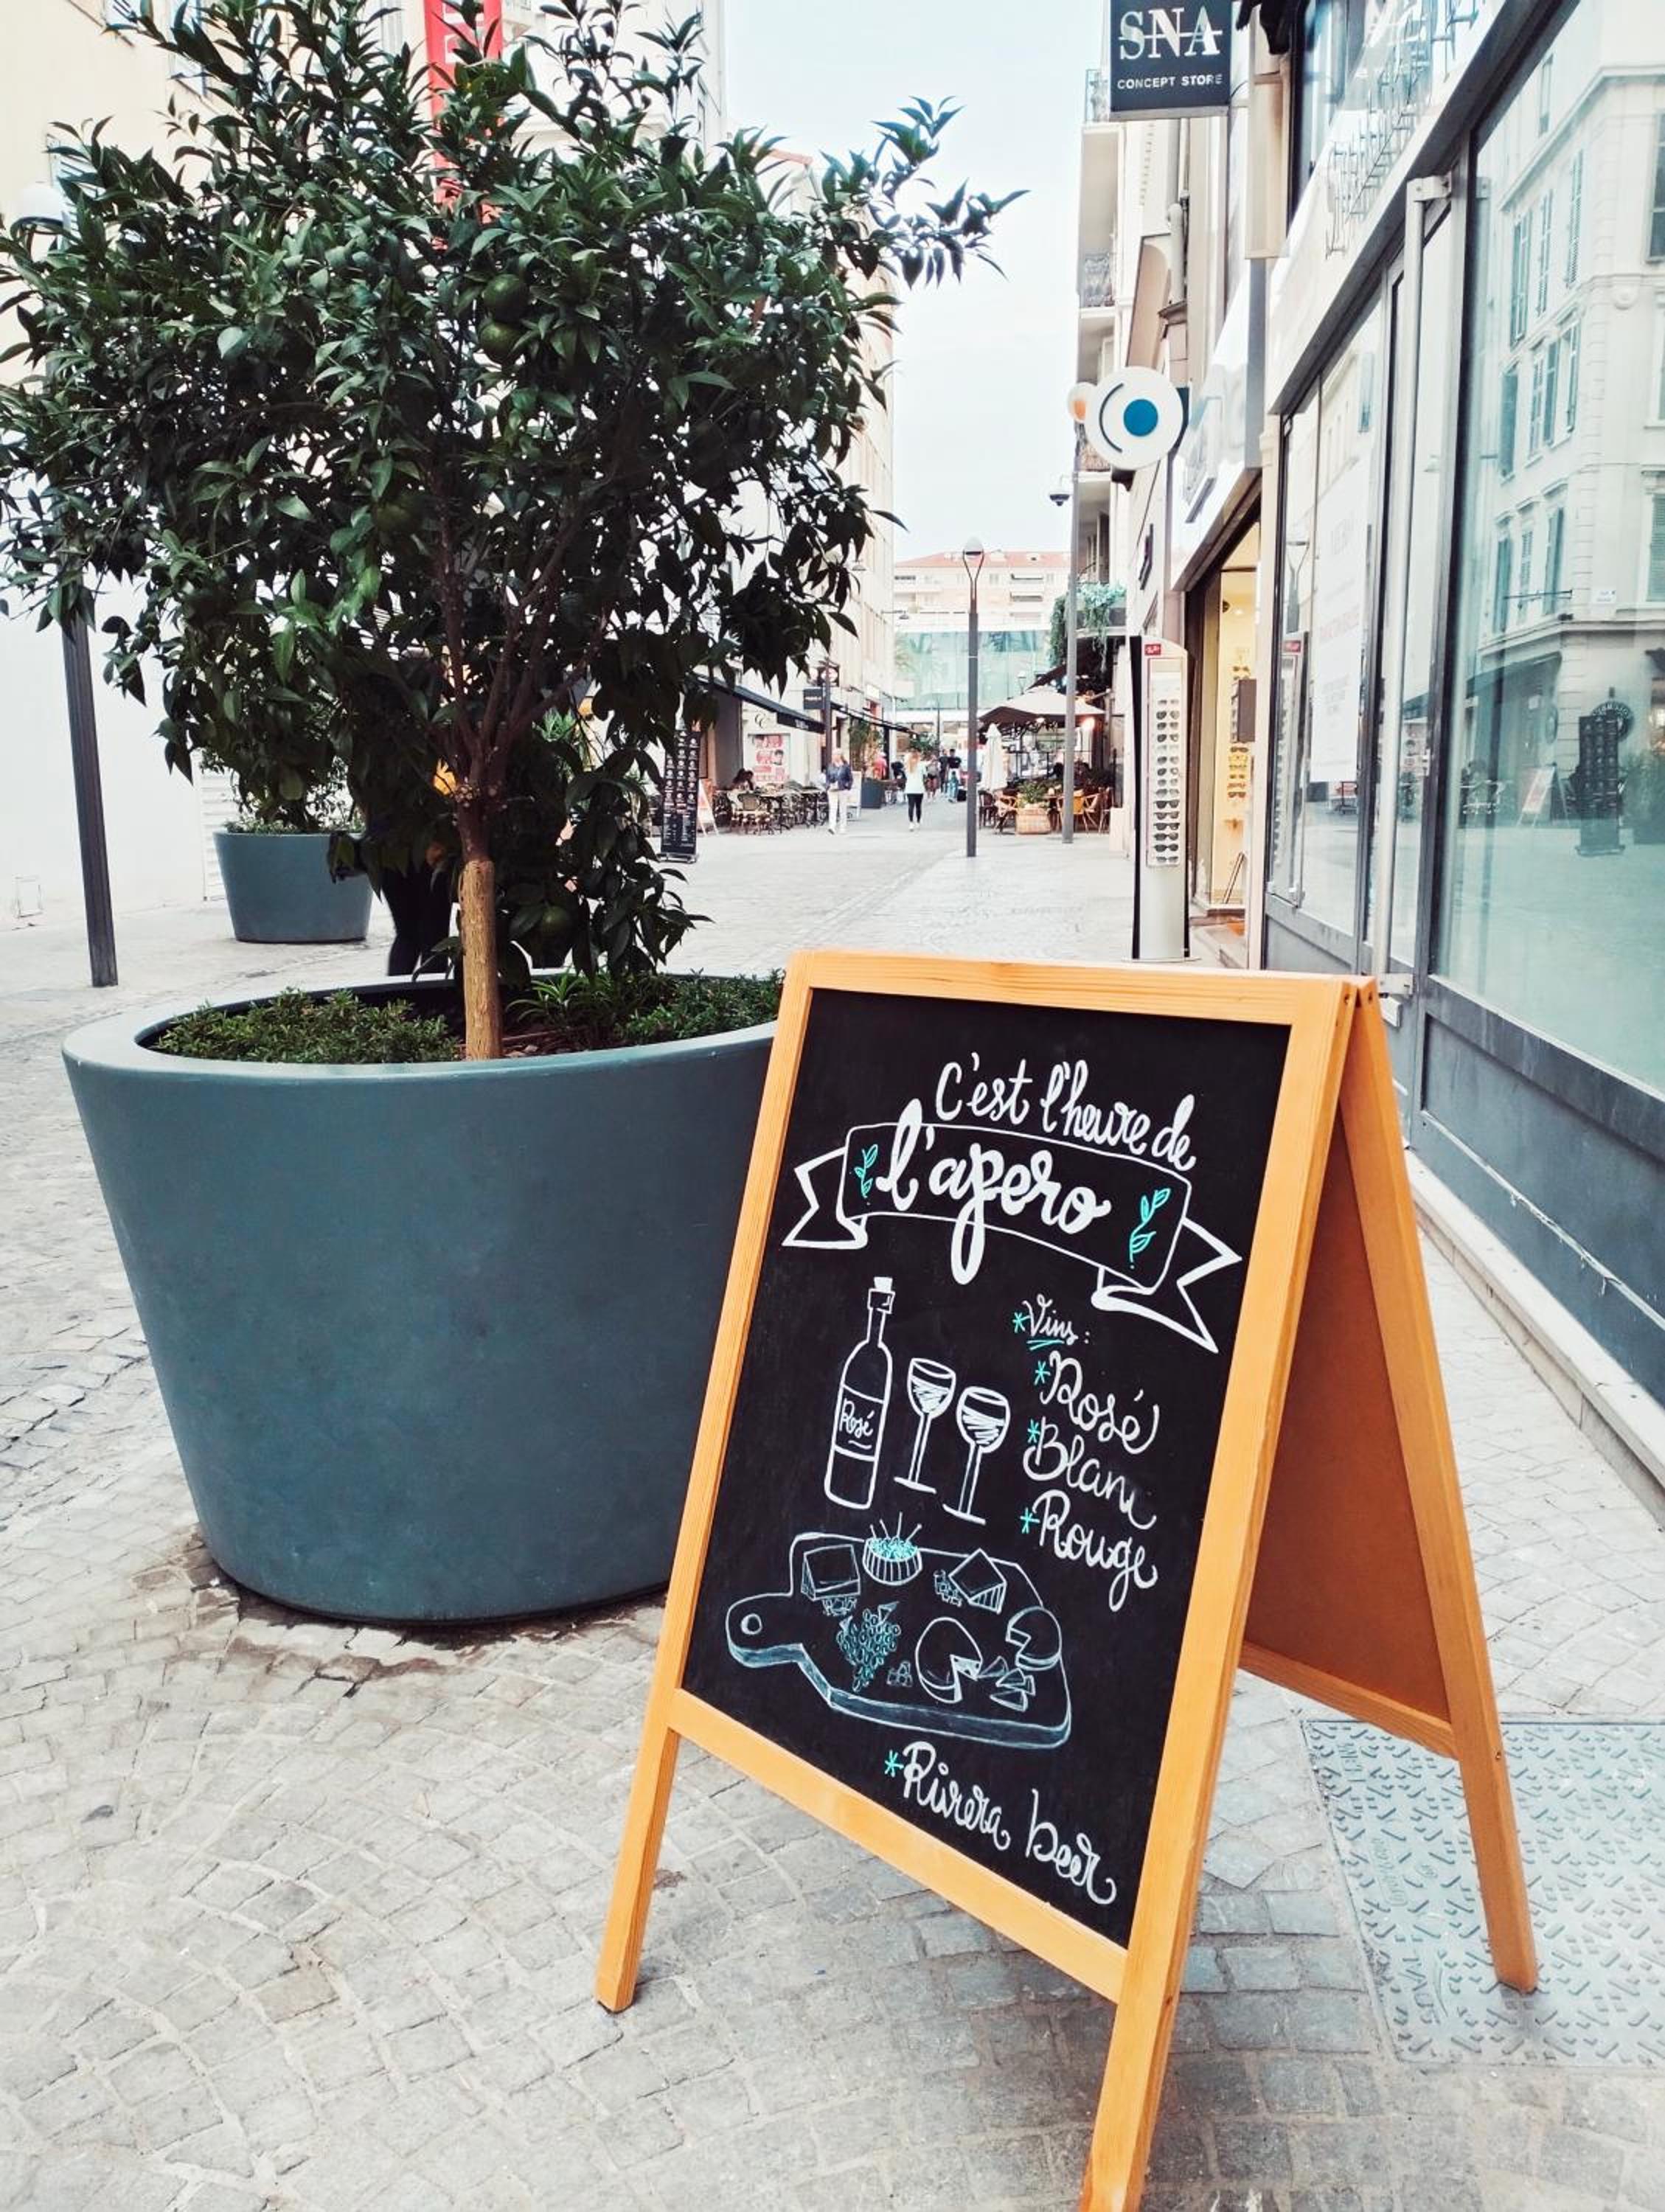 SNA
CONCEPT STORE
C'est l'heure de
l'apero
*Vins:
*Rosé
*Blanc
*Rouge
Rosé
*Riviera beer